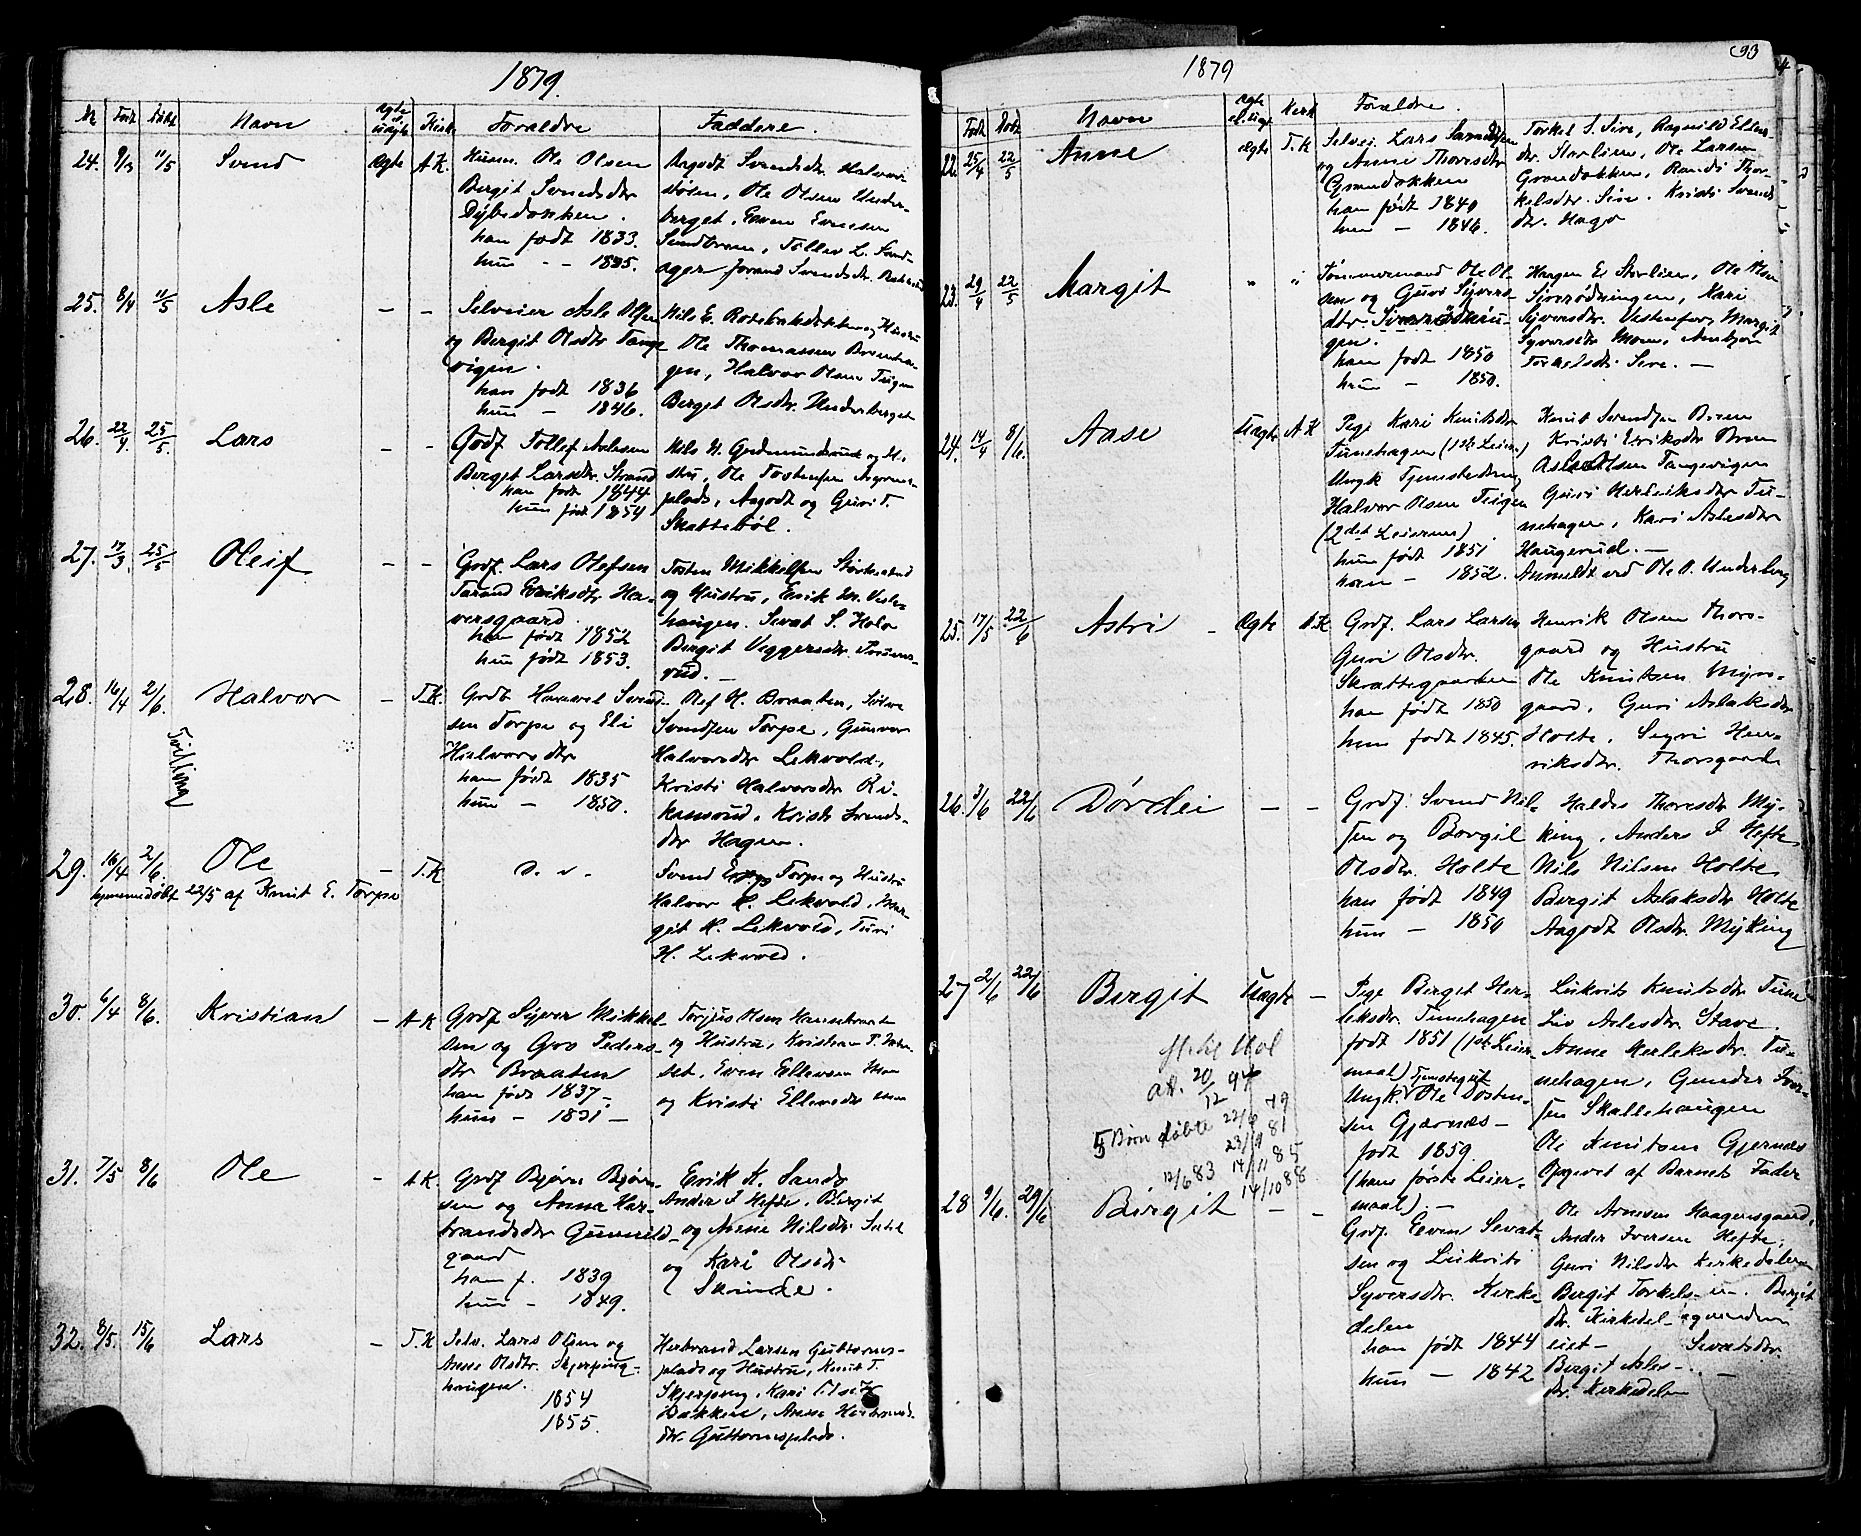 1879.
Nr Født Døbt Navn Ægte el. uægte Kirk. Foraldre Faddere.
24. 9/3 11/5 Svend Ægte A.K. Husm. Ole Olsen
Bergit Svendsdtr
Dybedokken.
han født 1833.
hun - - 1835.
Aagodt Svendsdtr. Halvor
støen, Ole Olsen Under-
berget, Even Evensen
Sundbræn, Tollev L. Sand-
ager Jorand Svendsdtr.
25. 8/4 11/5 Asle - - Selveier Asle Olsen
og Bergit Olsdtr Tange
vigen.
han født 1836
hun - 1846.
Nils E. Rotebakdokken og Hustru
Ole Thomassen Brenha-
gen, Halvor Olsen Teigen
Bergit Olsdtr. Underberget
26. 22/4 25/5. Lars - - Gbdf. Tollef Aslesen
Berget Larsdtr. Strand
han født 1844
hun født 1854
Nils N. Gudmundsrud og H.-
stru, Ole Tostensen
plads, Aagodt og Guri T.
Skattebøl.
27. 17/3 25/5 Oleif. - - Gbdf. Lars Olefsen
Tarand Eriksdtr Ha-
versgaard.
han født 1852
hun født 1853.
Tosten Mikkelsen
og Hustru, Erik Er. Veste-
haugen. Sevat S. Holo
Bergit Viggersdtr.
rud. -
28. 16/4 2/6. Halvor - T.K. Gbdf Hauvel Svend-
sen Torpe og Eli
Halvorsdtr
han født 1835
hun - 1850.
Olef H. Braaten, Sølve
Svendsen Torpe, Gunvor
Halvorsdtr Lekvold,
Kristi Halvorsdtr Ri-
kansrud, Kristi Svends-
dtr Hagen.
Tvillinger
29. 16/4 2/6. Ole - T.K D. v.
hjemmedøbt 22/5 af Knut E. Torpe
Svend Torpe og Hustru
Halvor H. Lekvold, Mar-
git H. Lekvold, Turi
H. Lekvold.
30. 6/4 8/6. Kristian - A.K Gbdf Syver Mikkel-
sen og Gro Peders-
dtr Braaten
han født 1837 -
hun - 1831 -
Torjus Olsen
og Hustru, Kristian P.
set, Even Ellevsen Moen
og Kristi Ellevsdtr Moen
31. 7/5 8/6 Ole - A.K. Gbdf Bjørn Bjørn-
sen og Anna Her-
brandsdtr Gunnild-
gaard
han f. 1839
hun - 1849.
Erik K. Sando
Ander I Hefte, Bergit
og Anne Nilsdtr.
og Kari Olsdtr
Sminde.
32. 8/5. 15/6 Lars - T.K Selv. Lars Olsen og
Anne Olsdtr. Skjerping-
haugen.
1854
1855.
Herbrand Larsen Guttorms-
plads og Hustru, Knut T.
Skjerping, Kari
Bakken, Anne Herbrands-
dtr Guttormsplads.
1879 93
Født Døbt Navn Ægte el. uægt Kirk Foraldre.
22. 25/4 22/5 Anne Ægte T.K Selvei. Lars
og Anne Thoresdtr
Grandokken
han født 1840
hun - 1846.
Torkel S. Sire, Ragnild Ellens
dtr. Storlien, Ole Larsen
Grandokken, Randi Thor-
kelsdtr. Sire. Kristi Svends
dtr. Hago
23. 29/4 22/5 Margit " " Tømmermand Ole Ol-
sen og Guri Syvers-
dtr
gen.
han født 1850
hun - 1850.
Haagen E. Storlien, Ole Olsen
Kari
Syversdtr. Vestenfor, Margit
Syversdtr Moen,
Torkelsdtr Sire. -
24. 14/4 8/6. Aase Uægte A.K Pige Kari Knutsdtr
Tunehagen (1ste Leierm)
Ungk Tjenestedreng
Halvor Olsen Teigen
(2det Leierm)
hun født 1851
han - 1852.
Knut Svendsen Broen
Kristi Eriksdtr Broen
Olsen Tangevigen
Guri Herleiksdtr Tu-
nehagen, Kari Aslesdtr
Haugerud. -
Anmeldt ved Ole O. Underberg
25. 17/5 22/6 Astri - Ægte A.K Gbdf. Lars Larsen
Guri Olsdtr.
Skrattegaarden
han født 1850
hun født 1845.
Henrik Olsen Thors-
gaard og Hustru
Ole Knutsen Myrs-
gaard, Guri Aslaksdtr
Holte, Sigri Hen-
riksdtr. Thorsgaard
26. 3/6 22/6 Dørdei - - Gbdf. Svend Nil-
sen og Bergit
Olsdtr. Holte
han født 1849
hun - 1850
Haldis Thoresdtr My-
king, Anders I Hefte
Nils Nilsen Holte
Bergit Aslaksdtr Holte
Aagodt Olsdtr. Myking
27 2/6 22/6 Birgit Uægte - Pige Berget Her-
leiksdtr. Tunehagen
født 1851 (1ste Leier-
maal) Tjenestegut
Ungk. Ole Tosten-
sen Gjærnæs -
født 1859.
(hans første Leier-
maal) -
Liv Aslesdtr. Stave
Anne Herleiksdtr. Tu-
nehagen, Gunder Iver-
sen Skallehaugen
Ole Knutsen Gjernæs
Opgivet af Barnets Fader
Aol
att. 20/12 94
5 Børn døbte 22/6 79
23/9 81
12/6 83 14/11 85
14/10 88
28 9/6. 29/6 Birgit - - Gbdf. Even Sevat-
sen og
Syversdtr. Kirke-
delen
han født 1844
hun - 1842
Ole Arnesen Haagensgaard,
Ander Iversen Hefte,
Guri Nilsdtr Kirkedelen
Bergit Torkels- Bergit
dtr. Kirkedel-
eiet - Sevatsdtr.
Birgit Asles- -
dtr. Kirkedelen